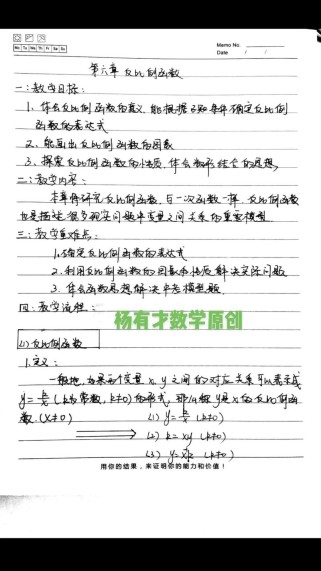 Memo No.
Mo Tu We Th Fr Sa Su
Date / /
第六章 反比例函数
一:教学目标:
1、体会反比例函数的意义,能根据已知条件确定反比例
函数的表达式
2、能画出反比例函数的图象
3、探索反比例函数的性质,体会数形结合的思想。
二:教学内容:
本章将研究反比例函数,与一次函数一样,反比例函数
也是描述很多现实问题中变量之间关系的重要模型
三:教学重难点:
1、确定反比例函数的表达式
2、利用反比例函数的图象和性质解决实际问题
3、体会函数思想解决中考模型题
四:教学流程:
杨有才数学原创
(1)反比例函数
1、定义:
一般地,如果两个变量x,y之间的对应关系可以表示成
y=k/x(k为常数,k≠0)的形式,那么称y是x的反比例函
数(x≠0) (1) y=k/x (k≠0)
(2) k=xy (k≠0)
(3) (k≠0)
用你的结果,来证明你的能力和价值!